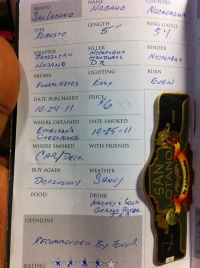 BRAND NAME COUNTRY
San Lotano Habano Nicaragua
TYPE LENGTH RING GAUGE
Robusto 5" 54
WRAPPER FILLER BINDER
Brazilian Habano Nicaragua Honduras D.R. Nicaragua
AROMA LIGHTING BURN
Floral Notes Easy Even
DATE PURCHASED PRICE
10-24-11 $6
WHERE OBTAINED DATE SMOKED
Emerson's Chesapeake 10-25-11
WHERE SMOKED WITH FRIENDS
Car/Deck
BUY AGAIN WEATHER
Definitely Sunny
FOOD DRINK
OPINIONS
Recommended By Tony A.
RATING